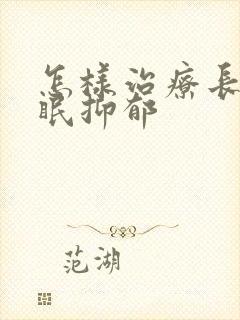 怎樣治療長
眠抑郁
范湖